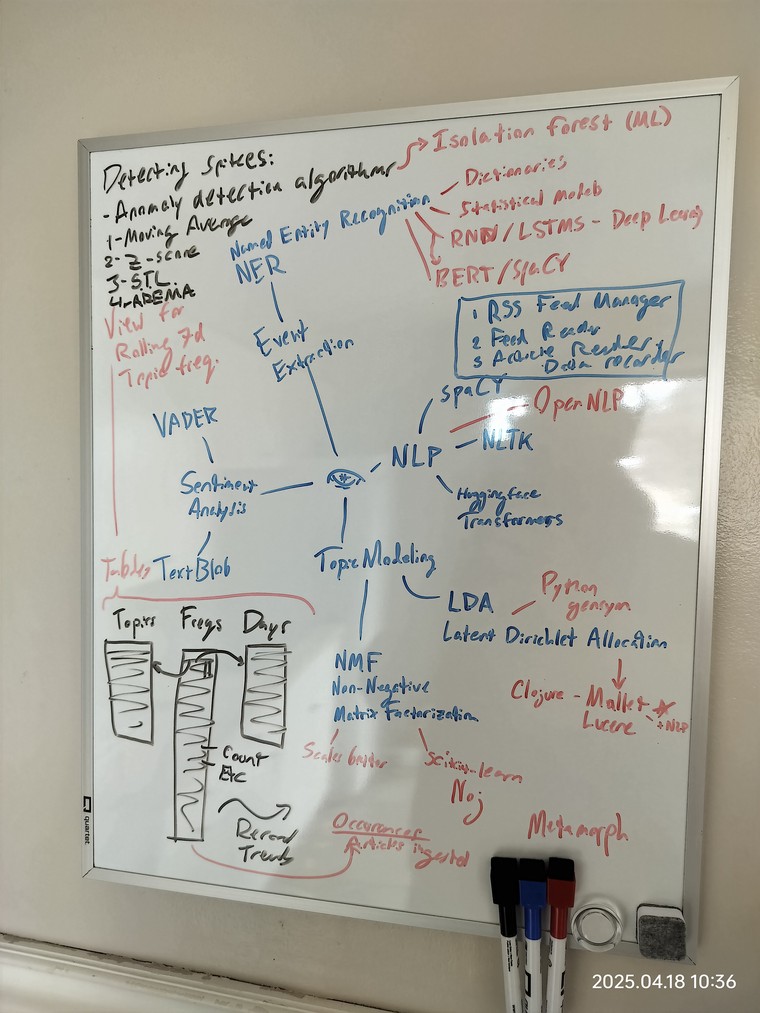 Detecting Spikes:
- Anomaly detection algorithms
1 - Moving Average
2 - Z-score
3 - S.T.L.
4 - AREMA
Isolation Forest (ML)
Named Entity Recognition
NER
Dictionaries
Statistical models
RNN/LSTMS - Deep Learnig
BERT/SpaCY
View for
Rolling 7d
Topic freq.
Event
Extraction
1 RSS Feed Manager
2 Feed Reader
3 Article Reader +
Data recorder
VADER
Sentiment
Analysis
TextBlob
NLP
SpaCY
OpenNLP
NLTK
Huggingface
Transformers
Topic Modeling
LDA
Latent Dirichlet Allocation
Python
gensym
Clojure - Mallet
Lucene
+NLP
NMF
Non-Negative
Matrix Factorization
Scales better
Scikit-learn
Noj
Metamorph
Tables
Topics Freqs Days
Count
Etc
Record
Trends
Occurences
Articles ingested
quartet
2025.04.18 10:36